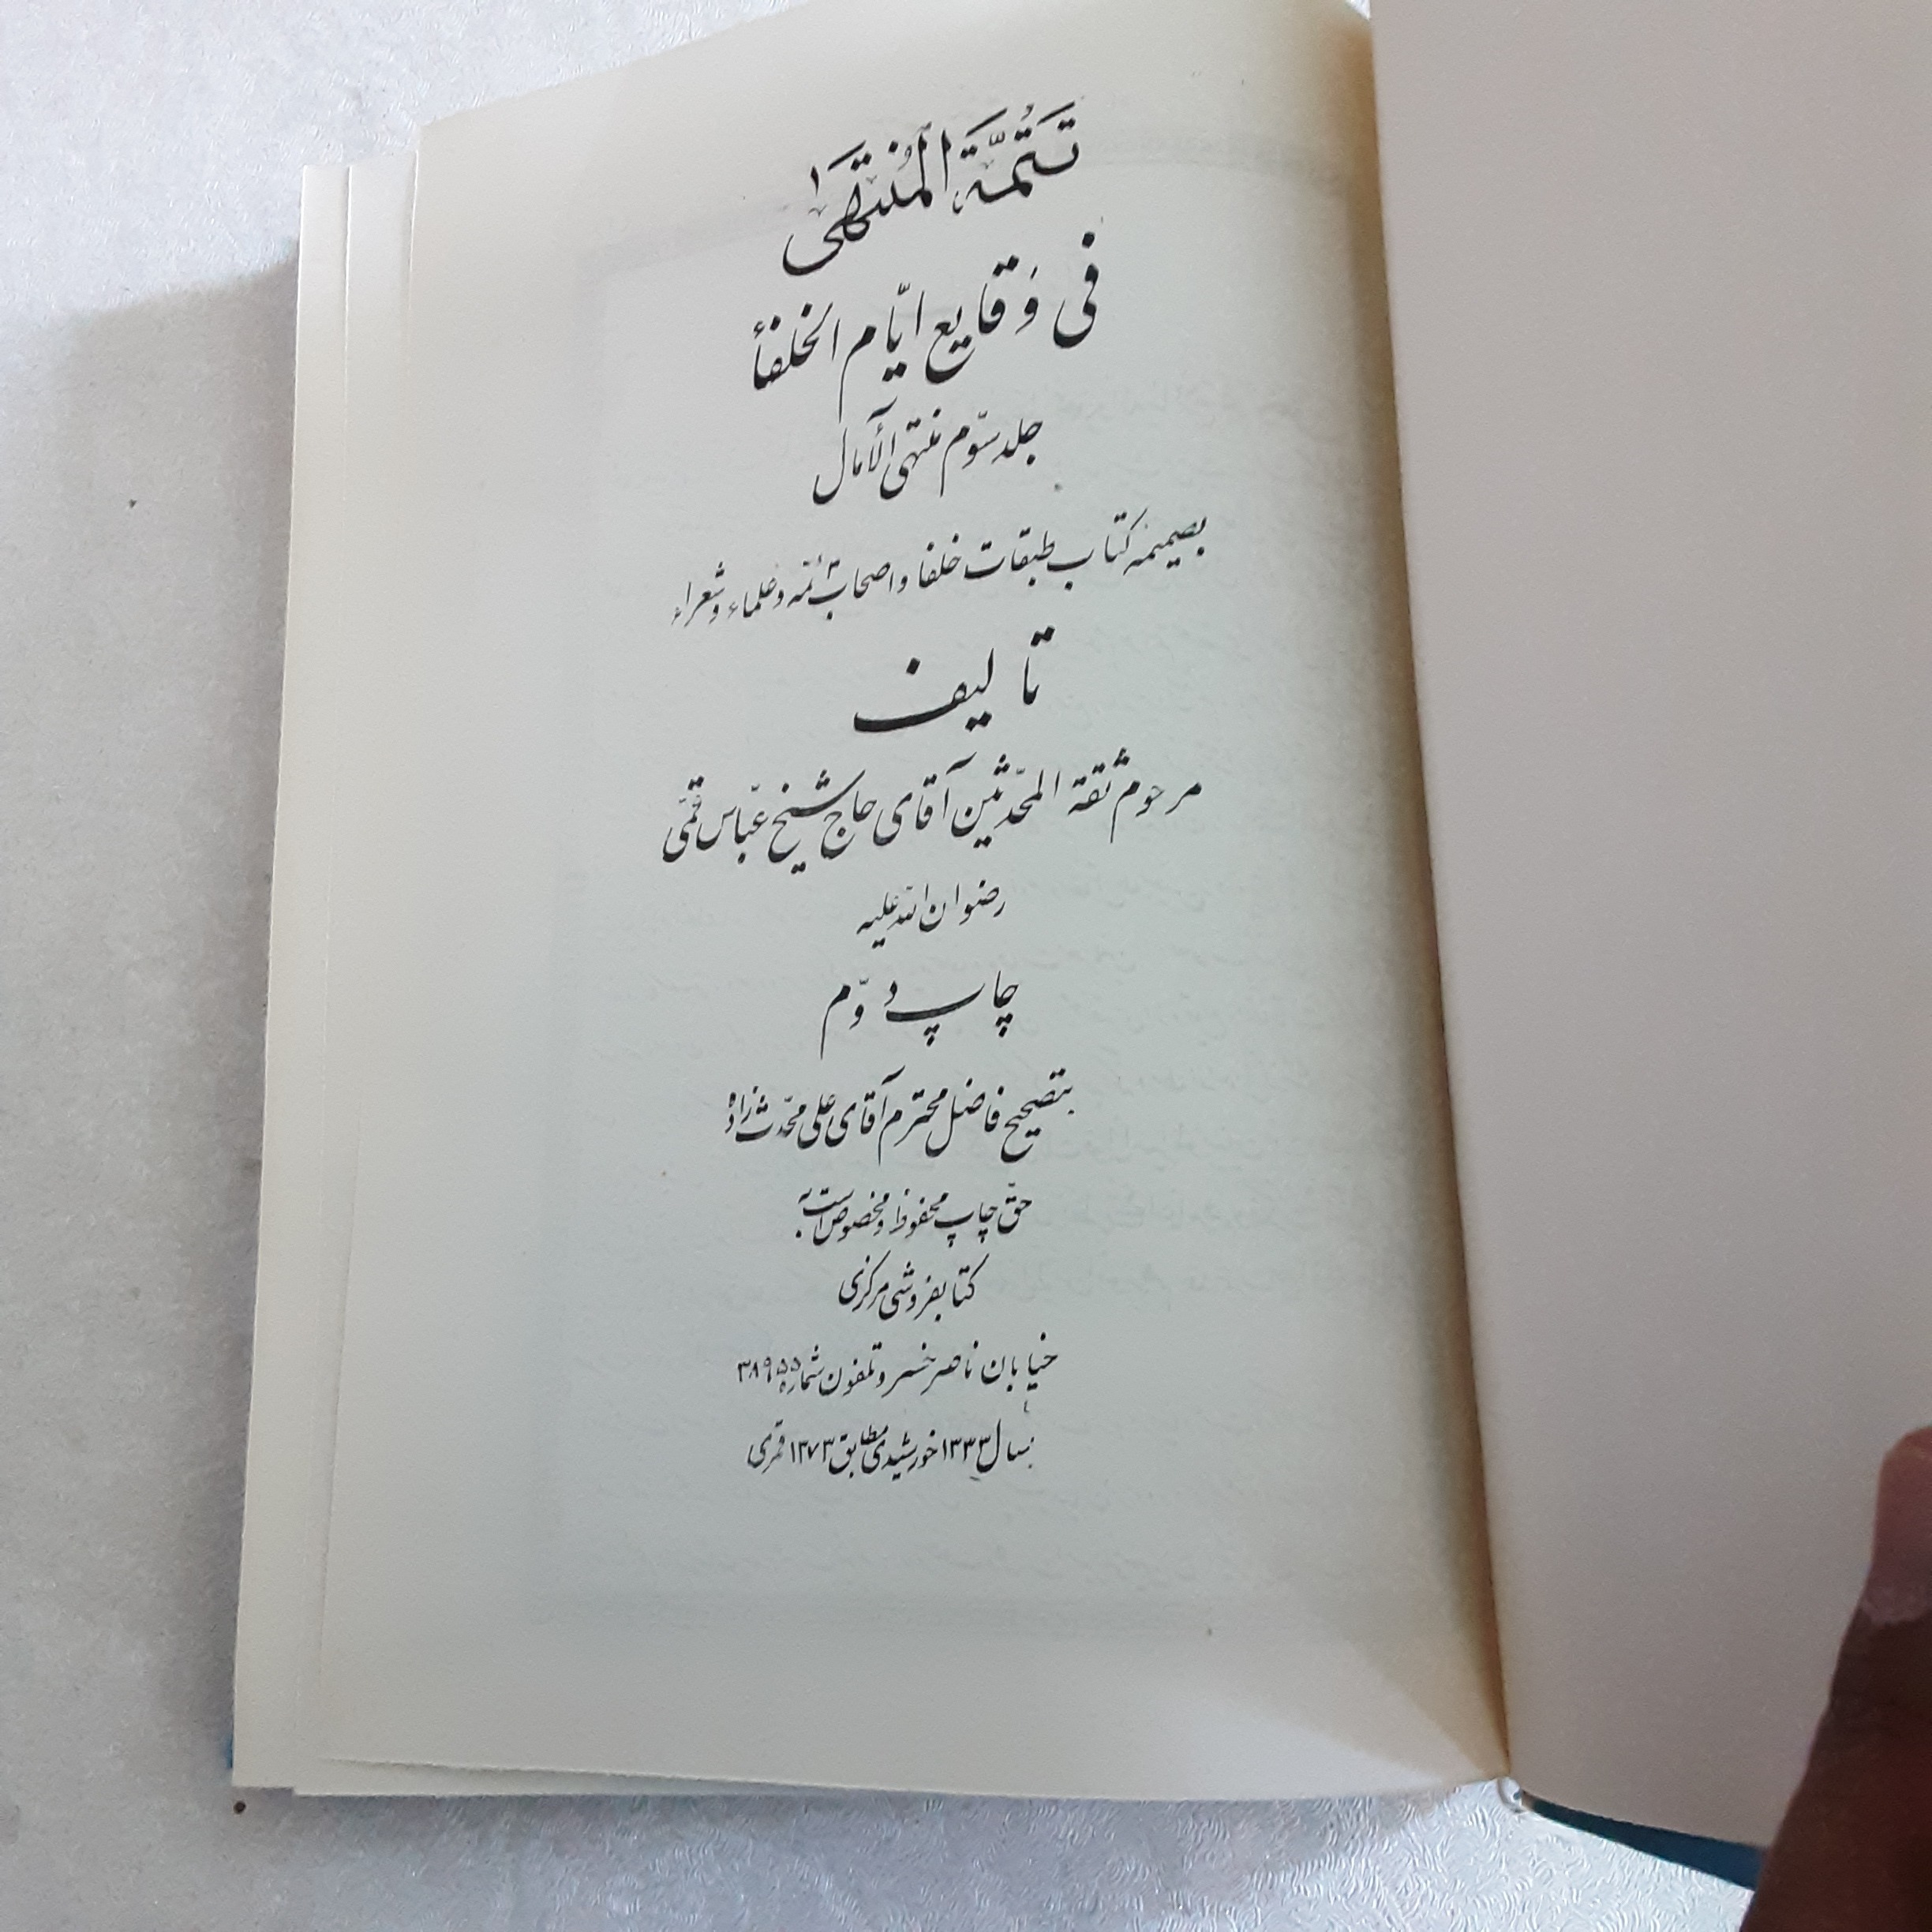 تَتِمَّةُ المُنتَهَی
فی وَقایع ایّام الخلفأ
جلد سوّم منتهی الآمال
بضمیمه کتاب طبقات خلفا و اصحاب ائمّه و علماء و شعراء
تالیف
مرحوم ثقة المحدّثین آقای حاج شیخ عبّاس قمّی
رضوان الله علیه
چاپ دوّم
بتصحیح فاضل محترم آقای علی محدّث زاده
حقّ چاپ محفوظ و مخصوص است به
کتابفروشی مرکزی
خیابان ناصر خسرو تلفون شماره ۳۸۹۵۵
بسال ۱۳۳۳ خورشیدی مطابق ۱۳۷۳ قمری